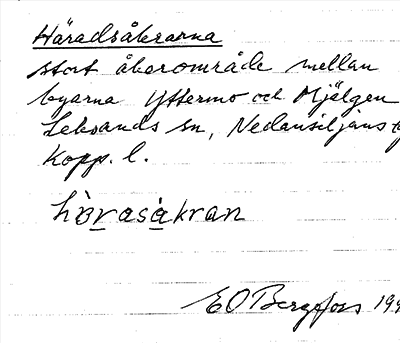 Häradsåkrarna
stort åkerområde mellan
byarna Yttermo och Hjälgen
Leksands sn, Nedansiljans
Kopp. l.
hä̀ra̲sà̲kran
E O Bergfors 19